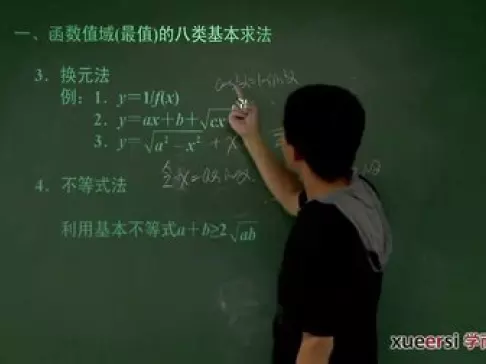 一、函数值域(最值)的八类基本求法
3．换元法
例：1．y=1/f(x)
2．y=ax+b+√cx
3．y=√a²−x² + x
4．不等式法
令x=asin
利用基本不等式a+b≥2√ab
xueersi 学而